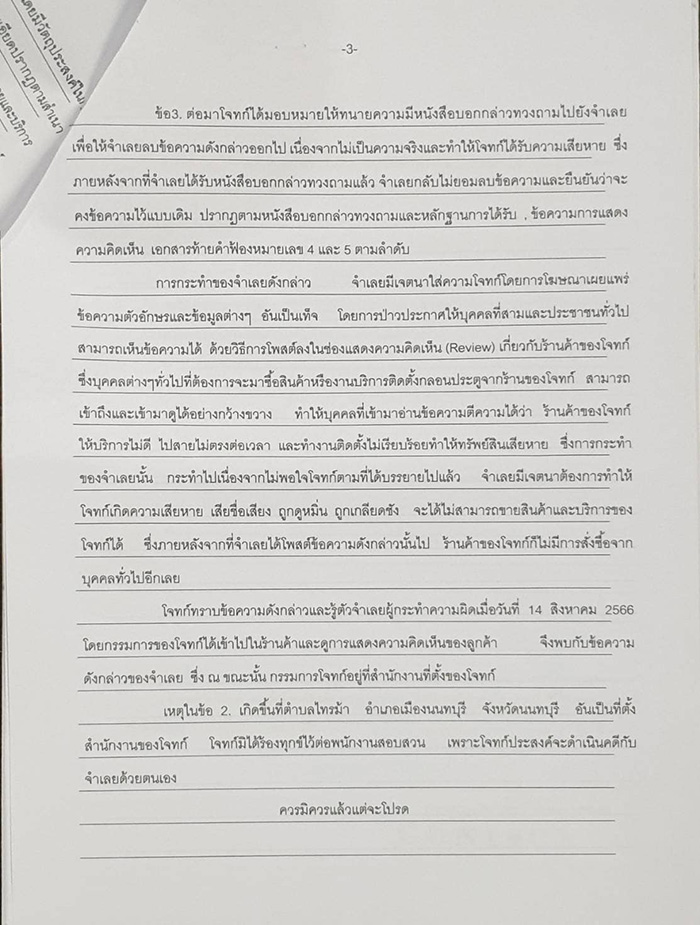 โดยมีวัตถุประสงค์ใน
เอียดปรากฏตามสำเนา
และบริการ
-3-
ข้อ3. ต่อมาโจทก์ได้มอบหมายให้ทนายความมีหนังสือบอกกล่าวทวงถามไปยังจำเลย
เพื่อให้จำเลยลบข้อความดังกล่าวออกไป เนื่องจากไม่เป็นความจริงและทำให้โจทก์ได้รับความเสียหาย ซึ่ง
ภายหลังจากที่จำเลยได้รับหนังสือบอกกล่าวทวงถามแล้ว จำเลยกลับไม่ยอมลบข้อความและยืนยันว่าจะ
คงข้อความไว้แบบเดิม ปรากฏตามหนังสือบอกกล่าวทวงถามและหลักฐานการได้รับ , ข้อความการแสดง
ความคิดเห็น เอกสารท้ายคำฟ้องหมายเลข 4 และ 5 ตามลำดับ
การกระทำของจำเลยดังกล่าว จำเลยมีเจตนาใส่ความโจทก์โดยการโฆษณาเผยแพร่
ข้อความตัวอักษรและข้อมูลต่างๆ อันเป็นเท็จ โดยการป่าวประกาศให้บุคคลที่สามและประชาชนทั่วไป
สามารถเห็นข้อความได้ ด้วยวิธีการโพสต์ลงในช่องแสดงความคิดเห็น (Review) เกี่ยวกับร้านค้าของโจทก์
ซึ่งบุคคลต่างๆทั่วไปที่ต้องการจะมาซื้อสินค้าหรืองานบริการติดตั้งกลอนประตูจากร้านของโจทก์ สามารถ
เข้าถึงและเข้ามาดูได้อย่างกว้างขวาง ทำให้บุคคลที่เข้ามาอ่านข้อความตีความได้ว่า ร้านค้าของโจทก์
ให้บริการไม่ดี ไปสายไม่ตรงต่อเวลา และทำงานติดตั้งไม่เรียบร้อยทำให้ทรัพย์สินเสียหาย ซึ่งการกระทำ
ของจำเลยนั้น กระทำไปเนื่องจากไม่พอใจโจทก์ตามที่ได้บรรยายไปแล้ว จำเลยมีเจตนาต้องการทำให้
โจทก์เกิดความเสียหาย เสียชื่อเสียง ถูกดูหมิ่น ถูกเกลียดชัง จะได้ไม่สามารถขายสินค้าและบริการของ
โจทก์ได้ ซึ่งภายหลังจากที่จำเลยได้โพสต์ข้อความดังกล่าวนั้นไป ร้านค้าของโจทก์ก็ไม่มีการสั่งซื้อจาก
บุคคลทั่วไปอีกเลย
โจทก์ทราบข้อความดังกล่าวและรู้ตัวจำเลยผู้กระทำความผิดเมื่อวันที่ 14 สิงหาคม 2566
โดยกรรมการของโจทก์ได้เข้าไปในร้านค้าและดูการแสดงความคิดเห็นของลูกค้า จึงพบกับข้อความ
ดังกล่าวของจำเลย ซึ่ง ณ ขณะนั้น กรรมการโจทก์อยู่ที่สำนักงานที่ตั้งของโจทก์
เหตุในข้อ 2. เกิดขึ้นที่ตำบลไทรม้า อำเภอเมืองนนทบุรี จังหวัดนนทบุรี อันเป็นที่ตั้ง
สำนักงานของโจทก์ โจทก์มิได้ร้องทุกข์ไว้ต่อพนักงานสอบสวน เพราะโจทก์ประสงค์จะดำเนินคดีกับ
จำเลยด้วยตนเอง
ควรมิควรแล้วแต่จะโปรด